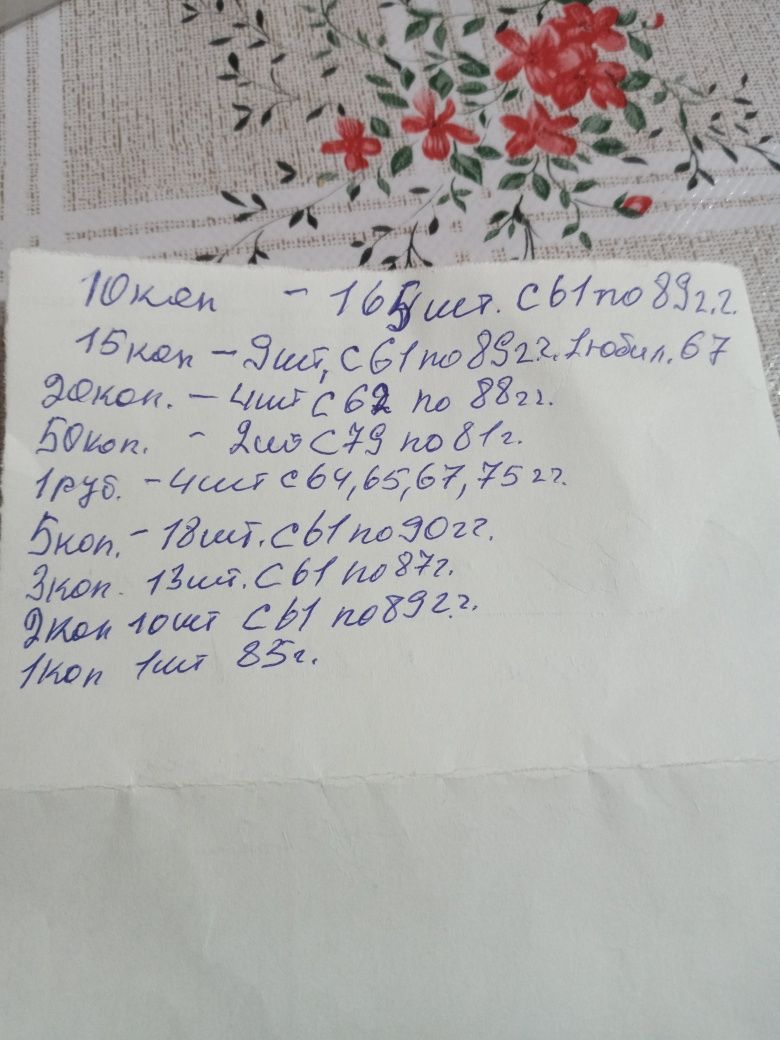 10коп - 165 шт. с 61 по 89 г.г.
15коп - 9шт, с 61 по 89 г г. 1 юбил. 67
20коп. - 4шт с 62 по 88 гг.
50коп. - 2шт с 79 по 81 г.
1 руб. - 4шт с 64, 65, 67, 75 гг.
5коп. - 18шт. с 61 по 90 гг.
3коп. 13шт. с 61 по 87г.
2коп 10шт с 61 по 89 г.г.
1коп 1шт 85г.